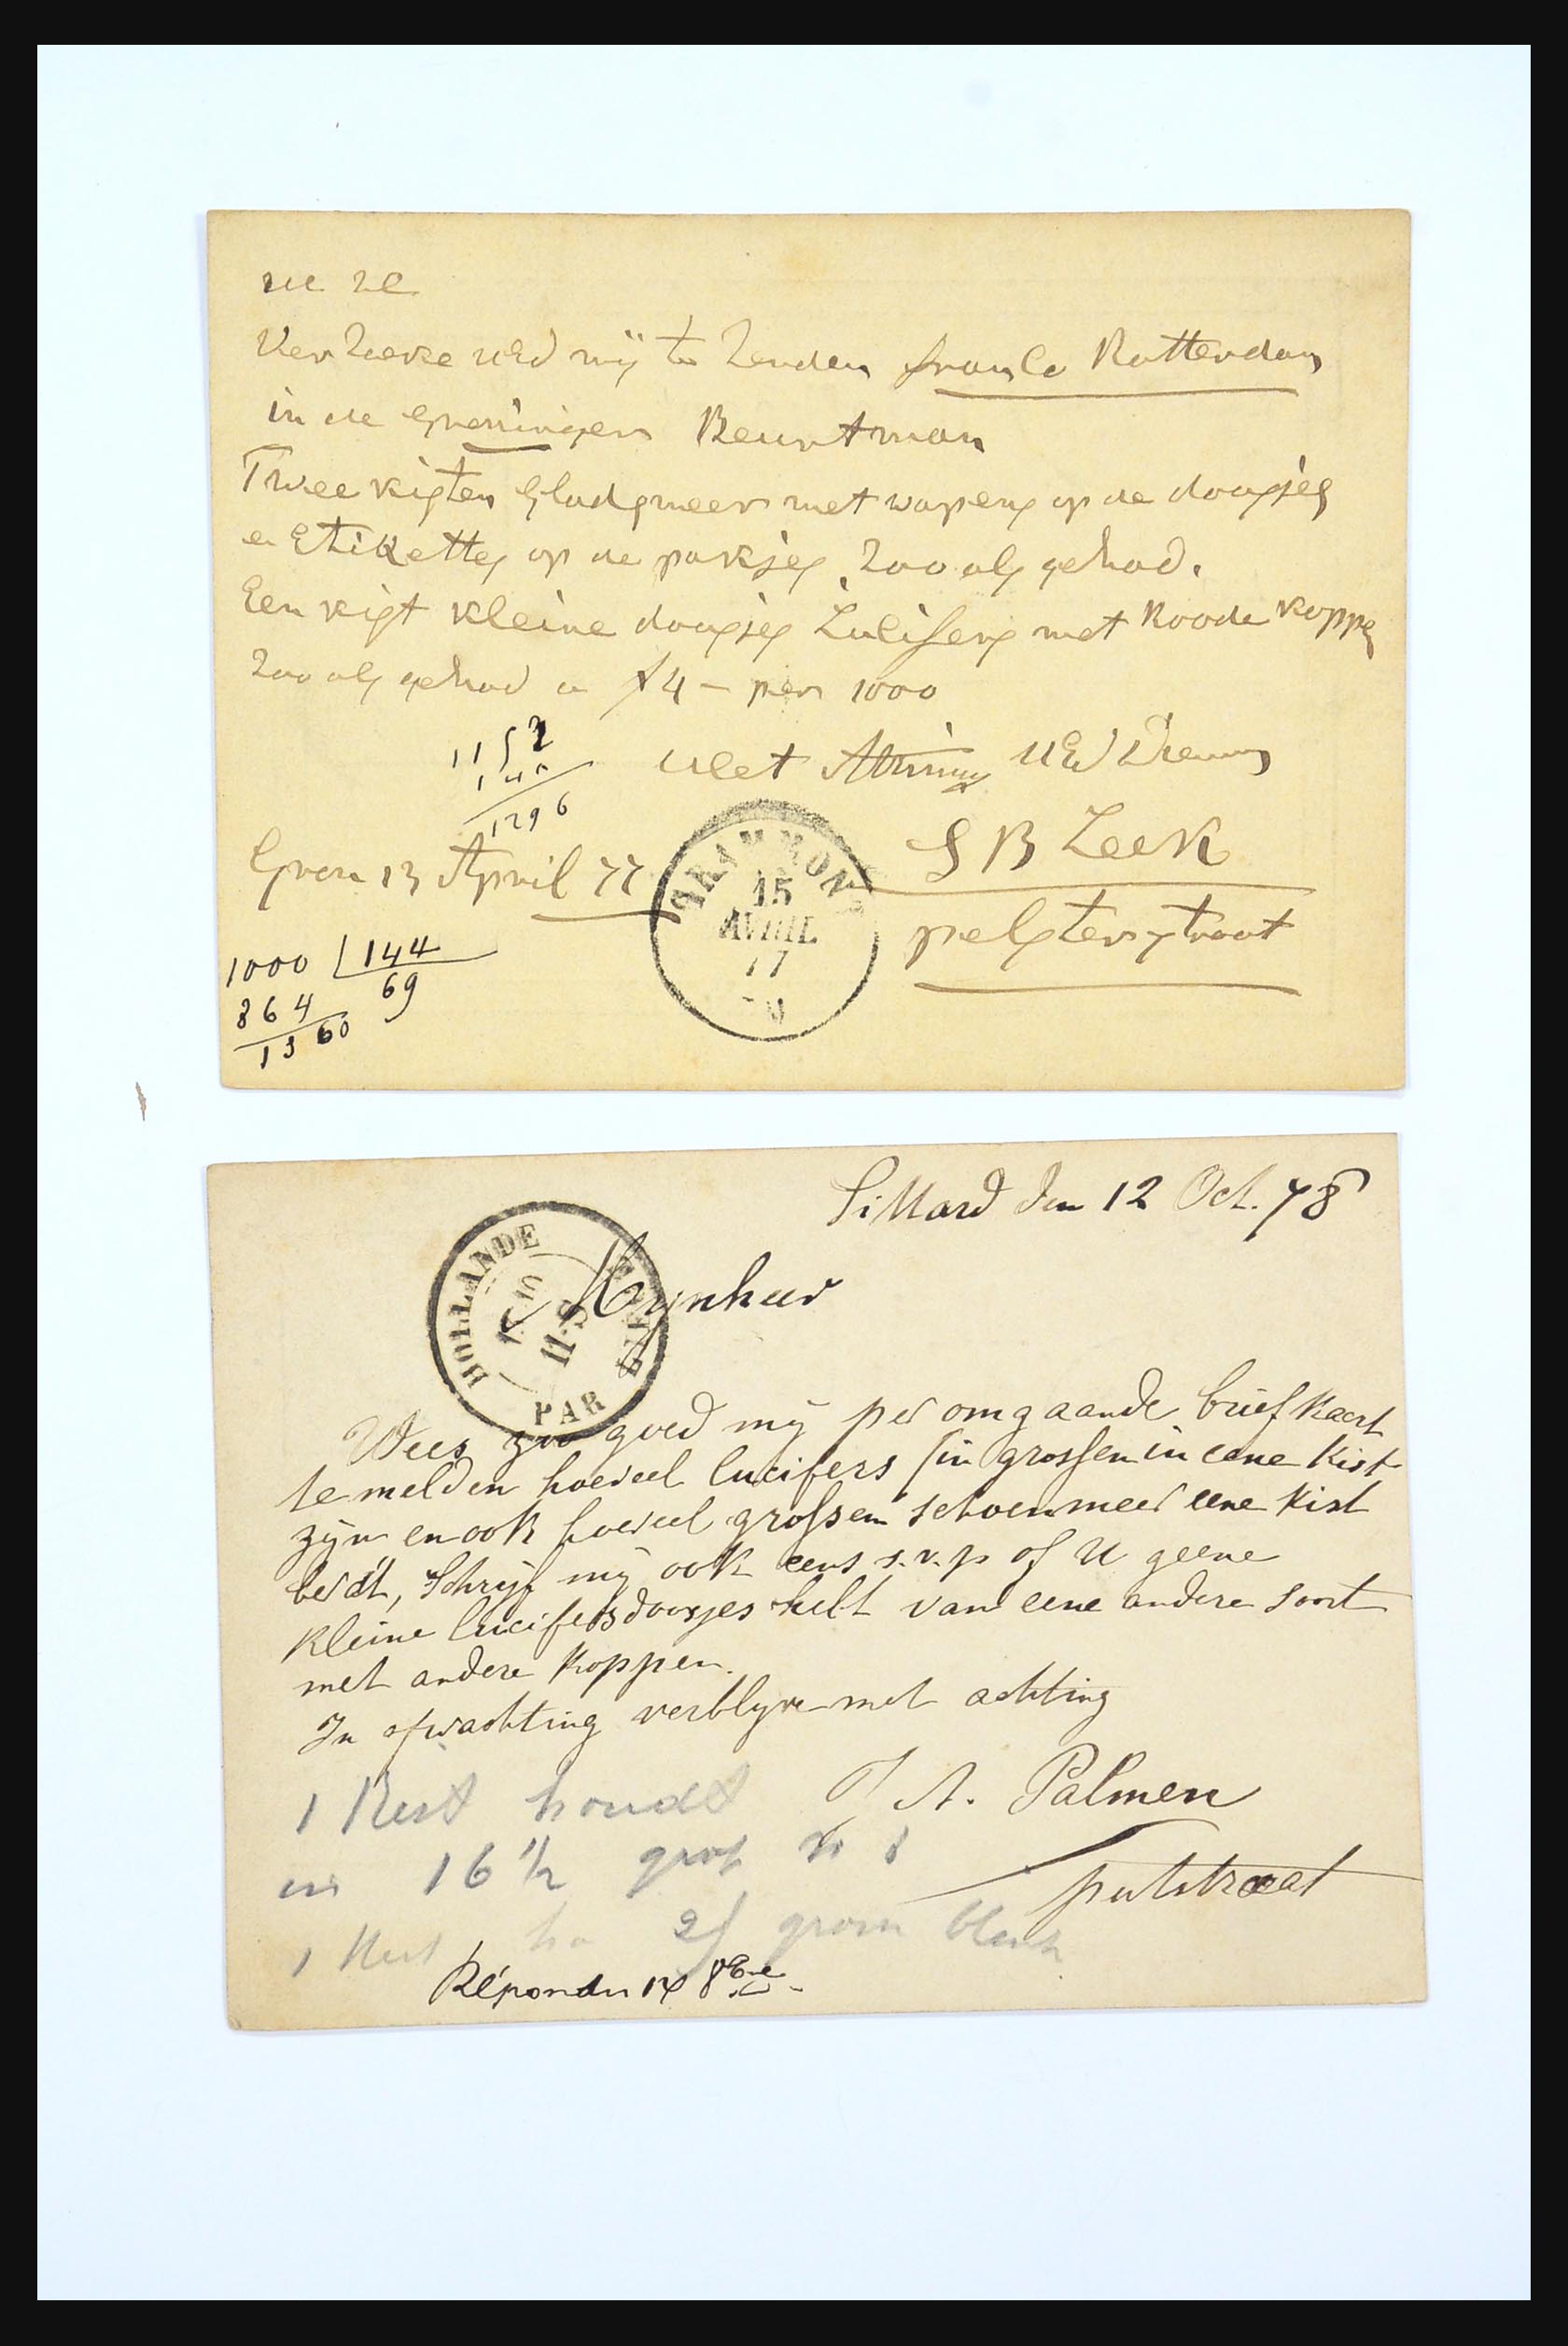 Verzoeke UEd mij te Zenden franco Rotterdam
in de Groninger Beurtman
Twee kisten Gladsmeer met wapens op de doosjes
en Etiketten op de pakjes, Zoo als gehad.
Een kist kleine doosjes Lucifers met Roode koppen
Zoo als gehad a f4 - per 1000
1152
144
1296
Met Achting UEd Dienaar
S B Leek
Gron 13 April 77
GRAMMONT
15
AVRIL
77
pelsterstraat
1000 144
864 69
1360
Sittard den 12 Oct. 78
HOLLANDE
PAR
11-S
Mijnheer
Wees zoo goed mij per omgaande briefkaart
te melden hoeveel lucifers (in grossen in eene Kist
zijn en ook hoeveel grossen schoensmeer eene Kist
bevat, Schrijf mij ook eens s.v.p of U geene
kleine lucifersdoosjes hebt van eene andere soort
met andere koppen.
In afwachting verblyve met achting
J A. Palmen
putstraat
1 Kist houdt
in 16 1/2 gros N 1
1 Kist gros
Répondu 14 8bre